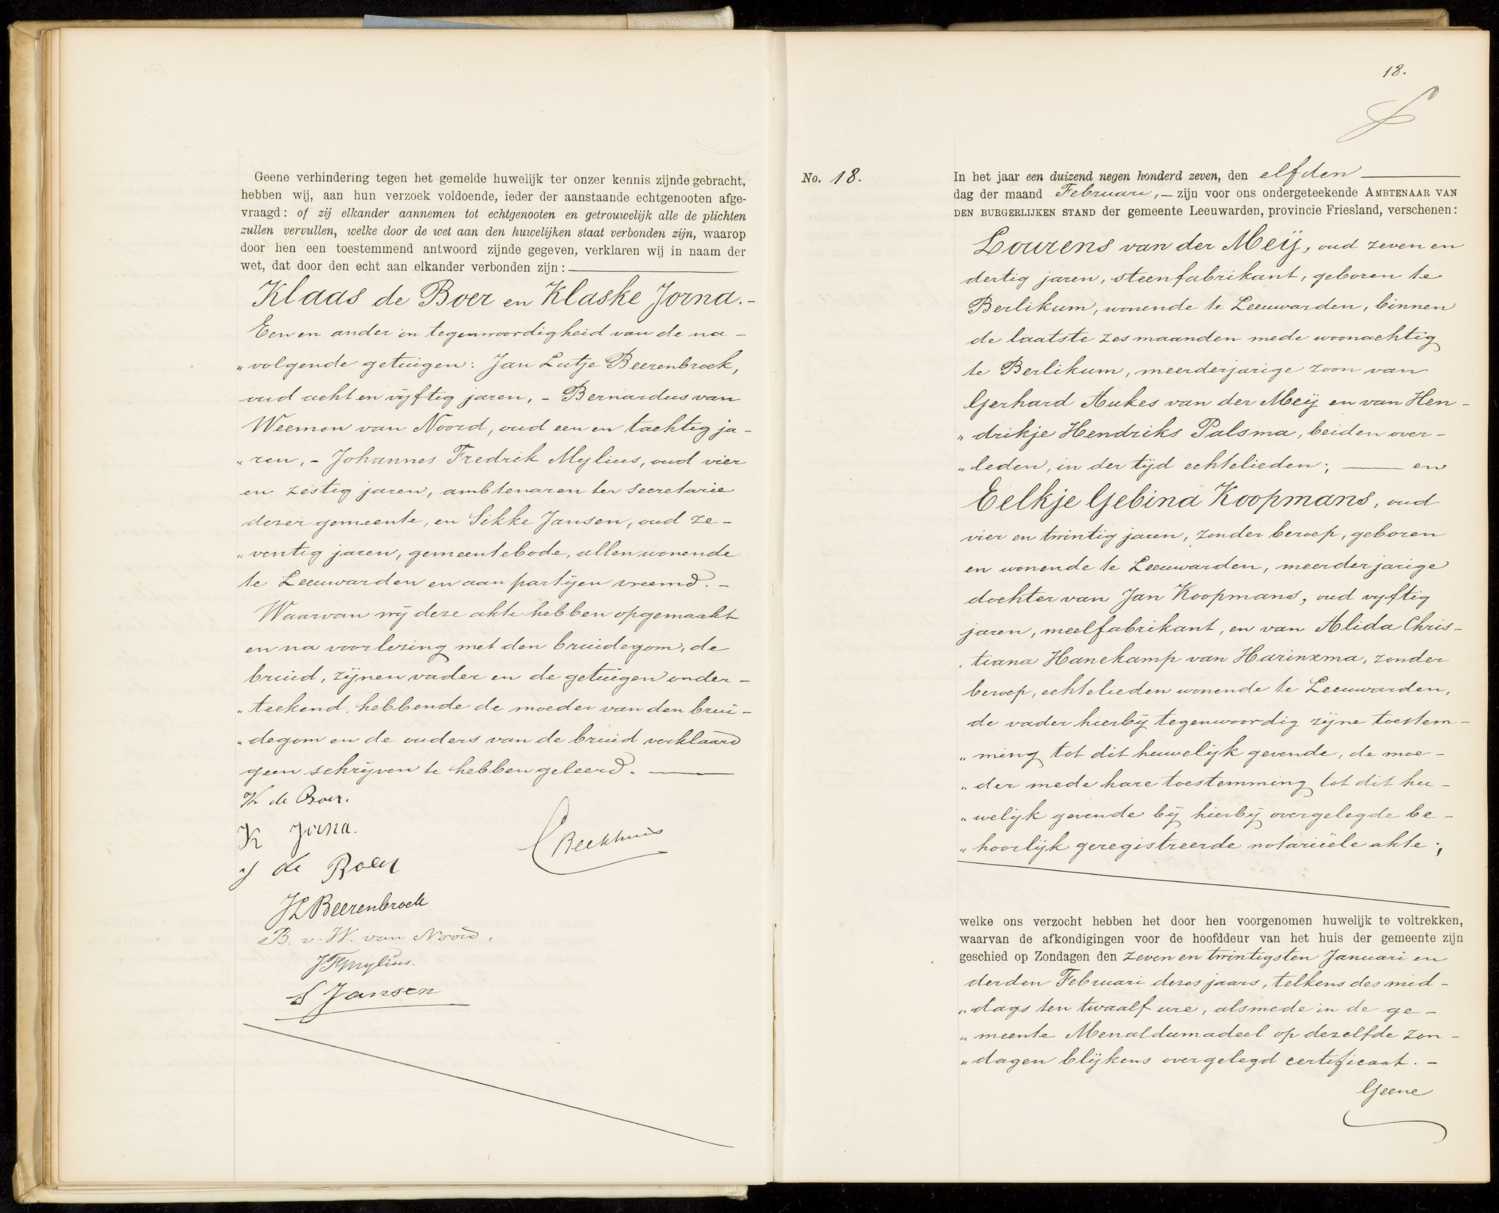 Geene verhindering tegen het gemelde huwelijk ter onzer kennis zijnde gebracht,
hebben wij, aan hun verzoek voldoende, ieder der aanstaande echtgenooten afge-
vraagd: of zij elkander aannemen tot echtgenooten en getrouwelijk alle de plichten
zullen vervullen, welke door de wet aan den huwelijken staat verbonden zijn, waarop
door hen een toestemmend antwoord zijnde gegeven, verklaren wij in naam der
wet, dat door den echt aan elkander verbonden zijn:
Klaas de Boer en Klaske Jorna. -
Een en ander in tegenwoordigheid van de na -
" volgende getuigen: Jan Lutje Beerenbroek,
oud acht en vijftig jaren, - Bernardus van
Weemen van Noord, oud een en tachtig ja -
" ren, - Johannes Fredrik Mylius, oud vier
en zestig jaren, ambtenaren ter secretarie
dezer gemeente, en Sikke Jansen, oud ze -
" ventig jaren, gemeentebode, allen wonende
te Leeuwarden en aan partijen vreemd. -
Waarvan wij deze akte hebben opgemaakt
en na voorlezing met den bruidegom, de
bruid, zijnen vader en de getuigen onder -
" teekend, hebbende de moeder van den brui -
" degom en de ouders van de bruid verklaard
geen schrijven te hebben geleerd.
K. de Boer.
K Jorna.
J de Boer
C Beekhuis
JL Beerenbroek
B. v. W. van Noord.
JFMylius.
S Jansen
18.
No. 18.
In het jaar een duizend negen honderd zeven, den elfden
dag der maand Februari, — zijn voor ons ondergeteekende AMBTENAAR VAN
DEN BURGERLIJKEN STAND der gemeente Leeuwarden, provincie Friesland, verschenen:
Lourens van der Meij, oud zeven en
dertig jaren, steenfabrikant, geboren te
Berlikum, wonende te Leeuwarden, binnen
de laatste zes maanden mede woonachtig
te Berlikum, meerderjarige zoon van
Gerhard Aukes van der Meij en van Hen -
" drikje Hendriks Palsma, beiden over -
" leden, in der tijd echtelieden; — en
Eelkje Gebina Koopmans, oud
vier en twintig jaren, zonder beroep, geboren
en wonende te Leeuwarden, meerderjarige
dochter van Jan Koopmans, oud vijftig
jaren, meelfabrikant, en van Alida Chris -
" tiana Hanekamp van Harinxma, zonder
beroep, echtelieden wonende te Leeuwarden,
de vader hierbij tegenwoordig zijne toestem -
" ming tot dit huwelijk gevende, de moe -
" der mede hare toestemming tot dit hu -
" welijk gevende bij hierbij overgelegde be -
" hoorlijk geregistreerde notariëele akte;
welke ons verzocht hebben het door hen voorgenomen huwelijk te voltrekken,
waarvan de afkondigingen voor de hoofddeur van het huis der gemeente zijn
geschied op Zondagen den zeven en twintigsten Januari en
derden Februari dezes jaars, telkens des mid -
" dags ten twaalf ure, alsmede in de ge -
" meente Menaldumadeel op dezelfde zon -
" dagen blijkens overgelegd certificaat. -
Geene